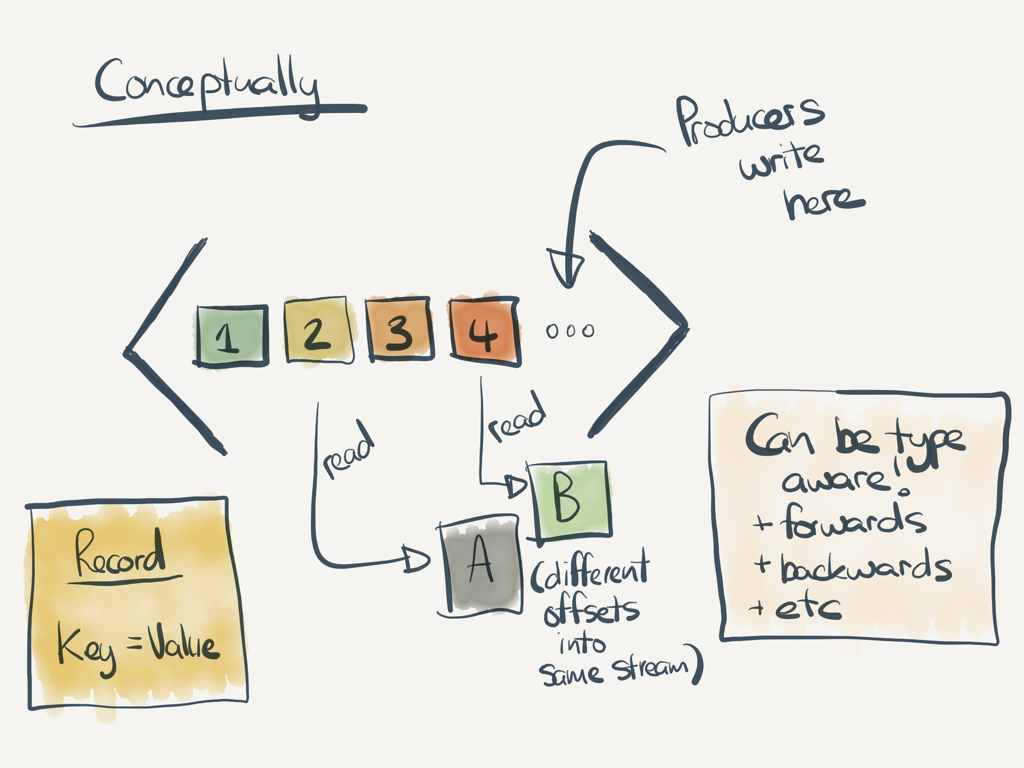 Conceptually
Producers
write
here
1 2 3 4 ooo
read
read
B
A
(different
offsets
into
same stream)
Record
Key = Value
Can be type
aware!
+ forwards
+ backwards
+ etc